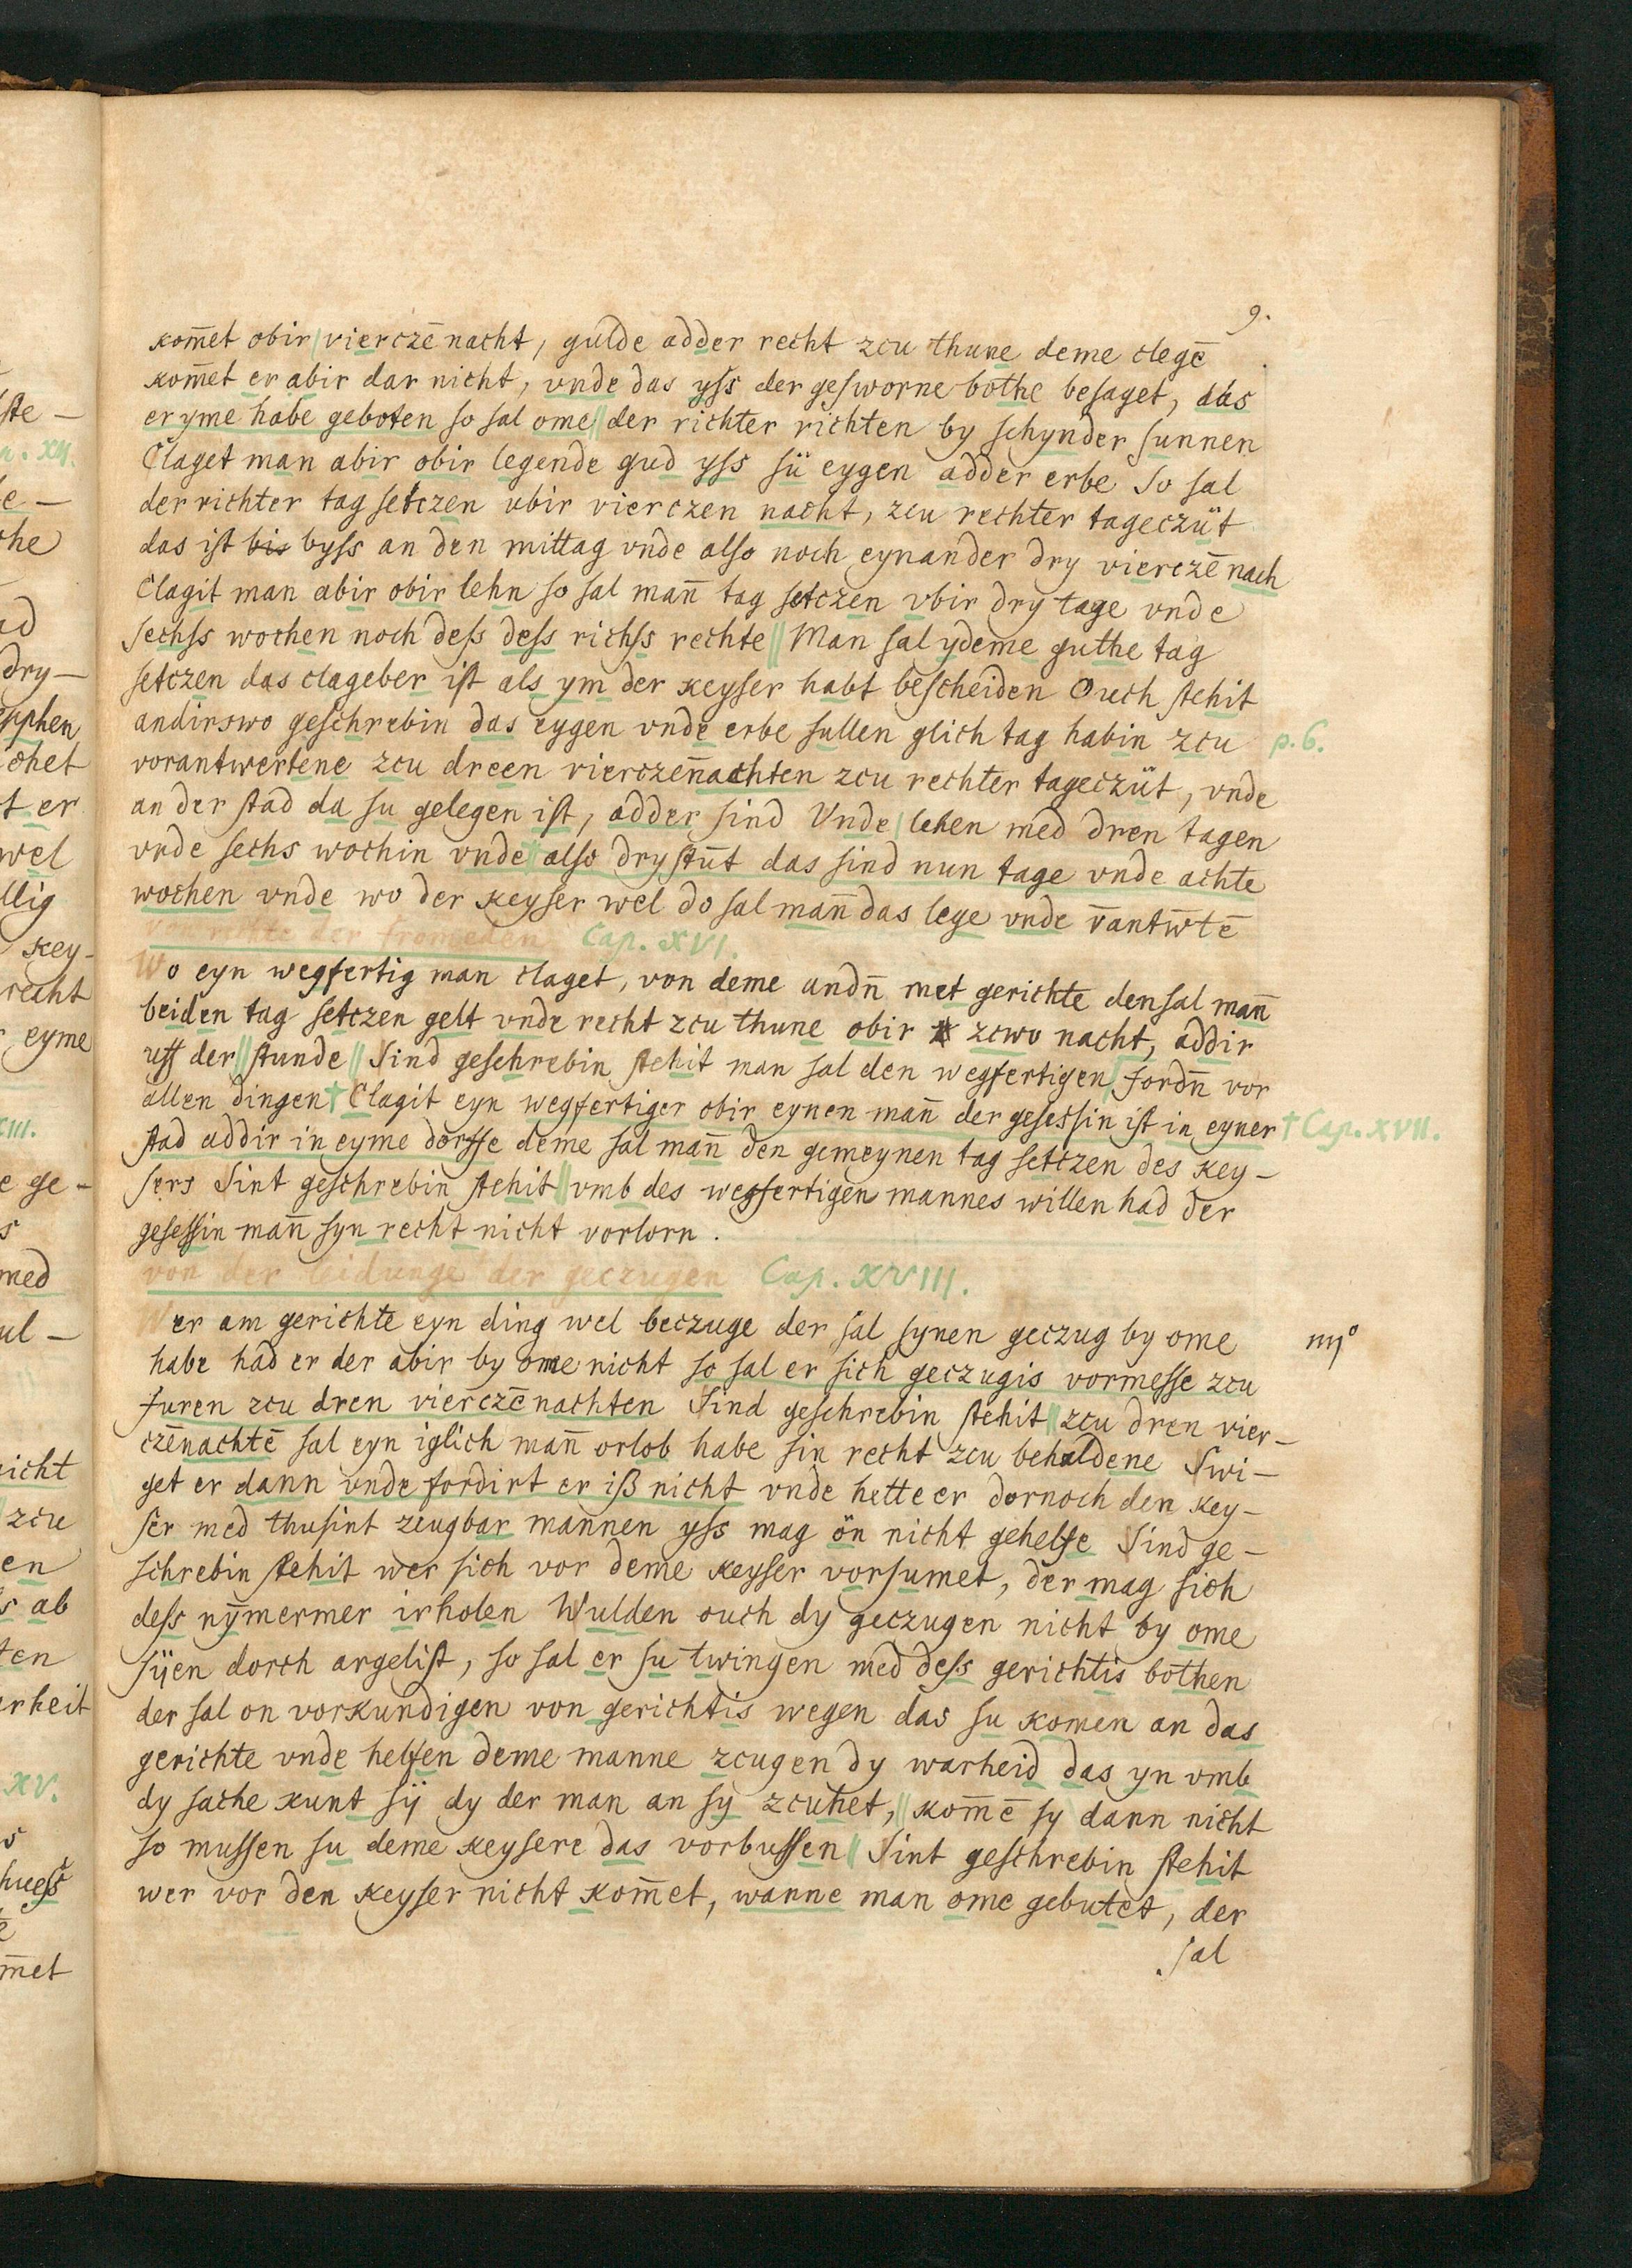 9.
kom̄et obir vierczē nacht, gulde adder recht zcu thune deme clegē
kom̄et er abir dar nicht, vnde das yss der gesworne bothe besaget, das
er yme habe geboten so sal ome der richter richten by schynder sunnen
Claget man abir obir legende gud yss sü eygen adder erbe So sal
der richter tag setczen vbir vierczen nacht, zcu rechter tageczüt
das ist bis byss an den mittag vnde also noch eynander dry vierczē nach
Clagit man abir obir lehn so sal man̄ tag setczen vbir dry tage vnde
sechss wochen noch dess dess richss rechte Man sal ydeme guthe tag
setczen das clageber ist als ym der keyser habt bescheiden Ouch stehit
andirswo geschrebin das eygen vnde erbe sullen glich tag habin zcu
p. 6.
vorantwertene zcu dreen vierczen̄achten zcu rechter tageczüt, vnde
an der stad da su gelegen ist, adder sind Vnde lehen med dren tagen
vnde sechs wochin vnde also drystūt das sind nun tage vnde achte
wochen vnde wo der keyser wel do sal man̄ das lege vnde v̄antw̄tē
Von rechte der fromeden Cap. XVI.
Wo eyn wegfertig man claget, von deme andn̄ met gerichte den sal man̄
beiden tag setczen gelt vnde recht zcu thune obir zcwo nacht, addir
uff der stunde Sind geschrebin stehit man sal den wegfertigen fordn̄ vor
allen dingen † Clagit eyn wegfertiger obir eynen man̄ der gesessin ist in eyner
† Cap. XVII.
stad addir in eyme dorffe deme sal man̄ den gemeynen tag setczen des key-
sers Sint geschrebin stehit vmb des wegfertigen mannes willen had der
gesessin man̄ syn recht nicht vorlorn.
von der leidunge der geczugen Cap. XVIII.
Wer am gerichte eyn ding wel beczuge der sal synen geczug by ome
habe had er der abir by ome nicht so sal er sich geczugis vormesse zcu
furen zcu dren vierczē nachten Sind geschrebin stehit zcu dren vier-
czēnachtē sal eyn iglich man̄ orlob habe sin recht zcu behaldene Swi-
get er dann vnde fordirt er iß nicht vnde hette er dornoch den key-
ser med thusint zeugbar mannen yss mag ön nicht gehelfe Sind ge-
schrebin stehit wer sich vor deme keyser vorsumet, der mag sich
dess nȳmermer irholen Wulden ouch dy geczugen nicht by ome
sÿen dorch argelist, so sal er su twingen med dess gerichtis bothen
der sal on vorkundigen von gerichtis wegen das su komen an das
gerichte vnde helfen deme manne zcugen dy warheid das yn vmb
dy sache kunt sÿ dy der man an sy zcuhet, kom̄ē sy dann nicht
so mussen su deme keysere das vorbussen Sint geschrebin stehit
wer vor den keyser nicht kom̄et, wanne man ome gebutet, der
sal